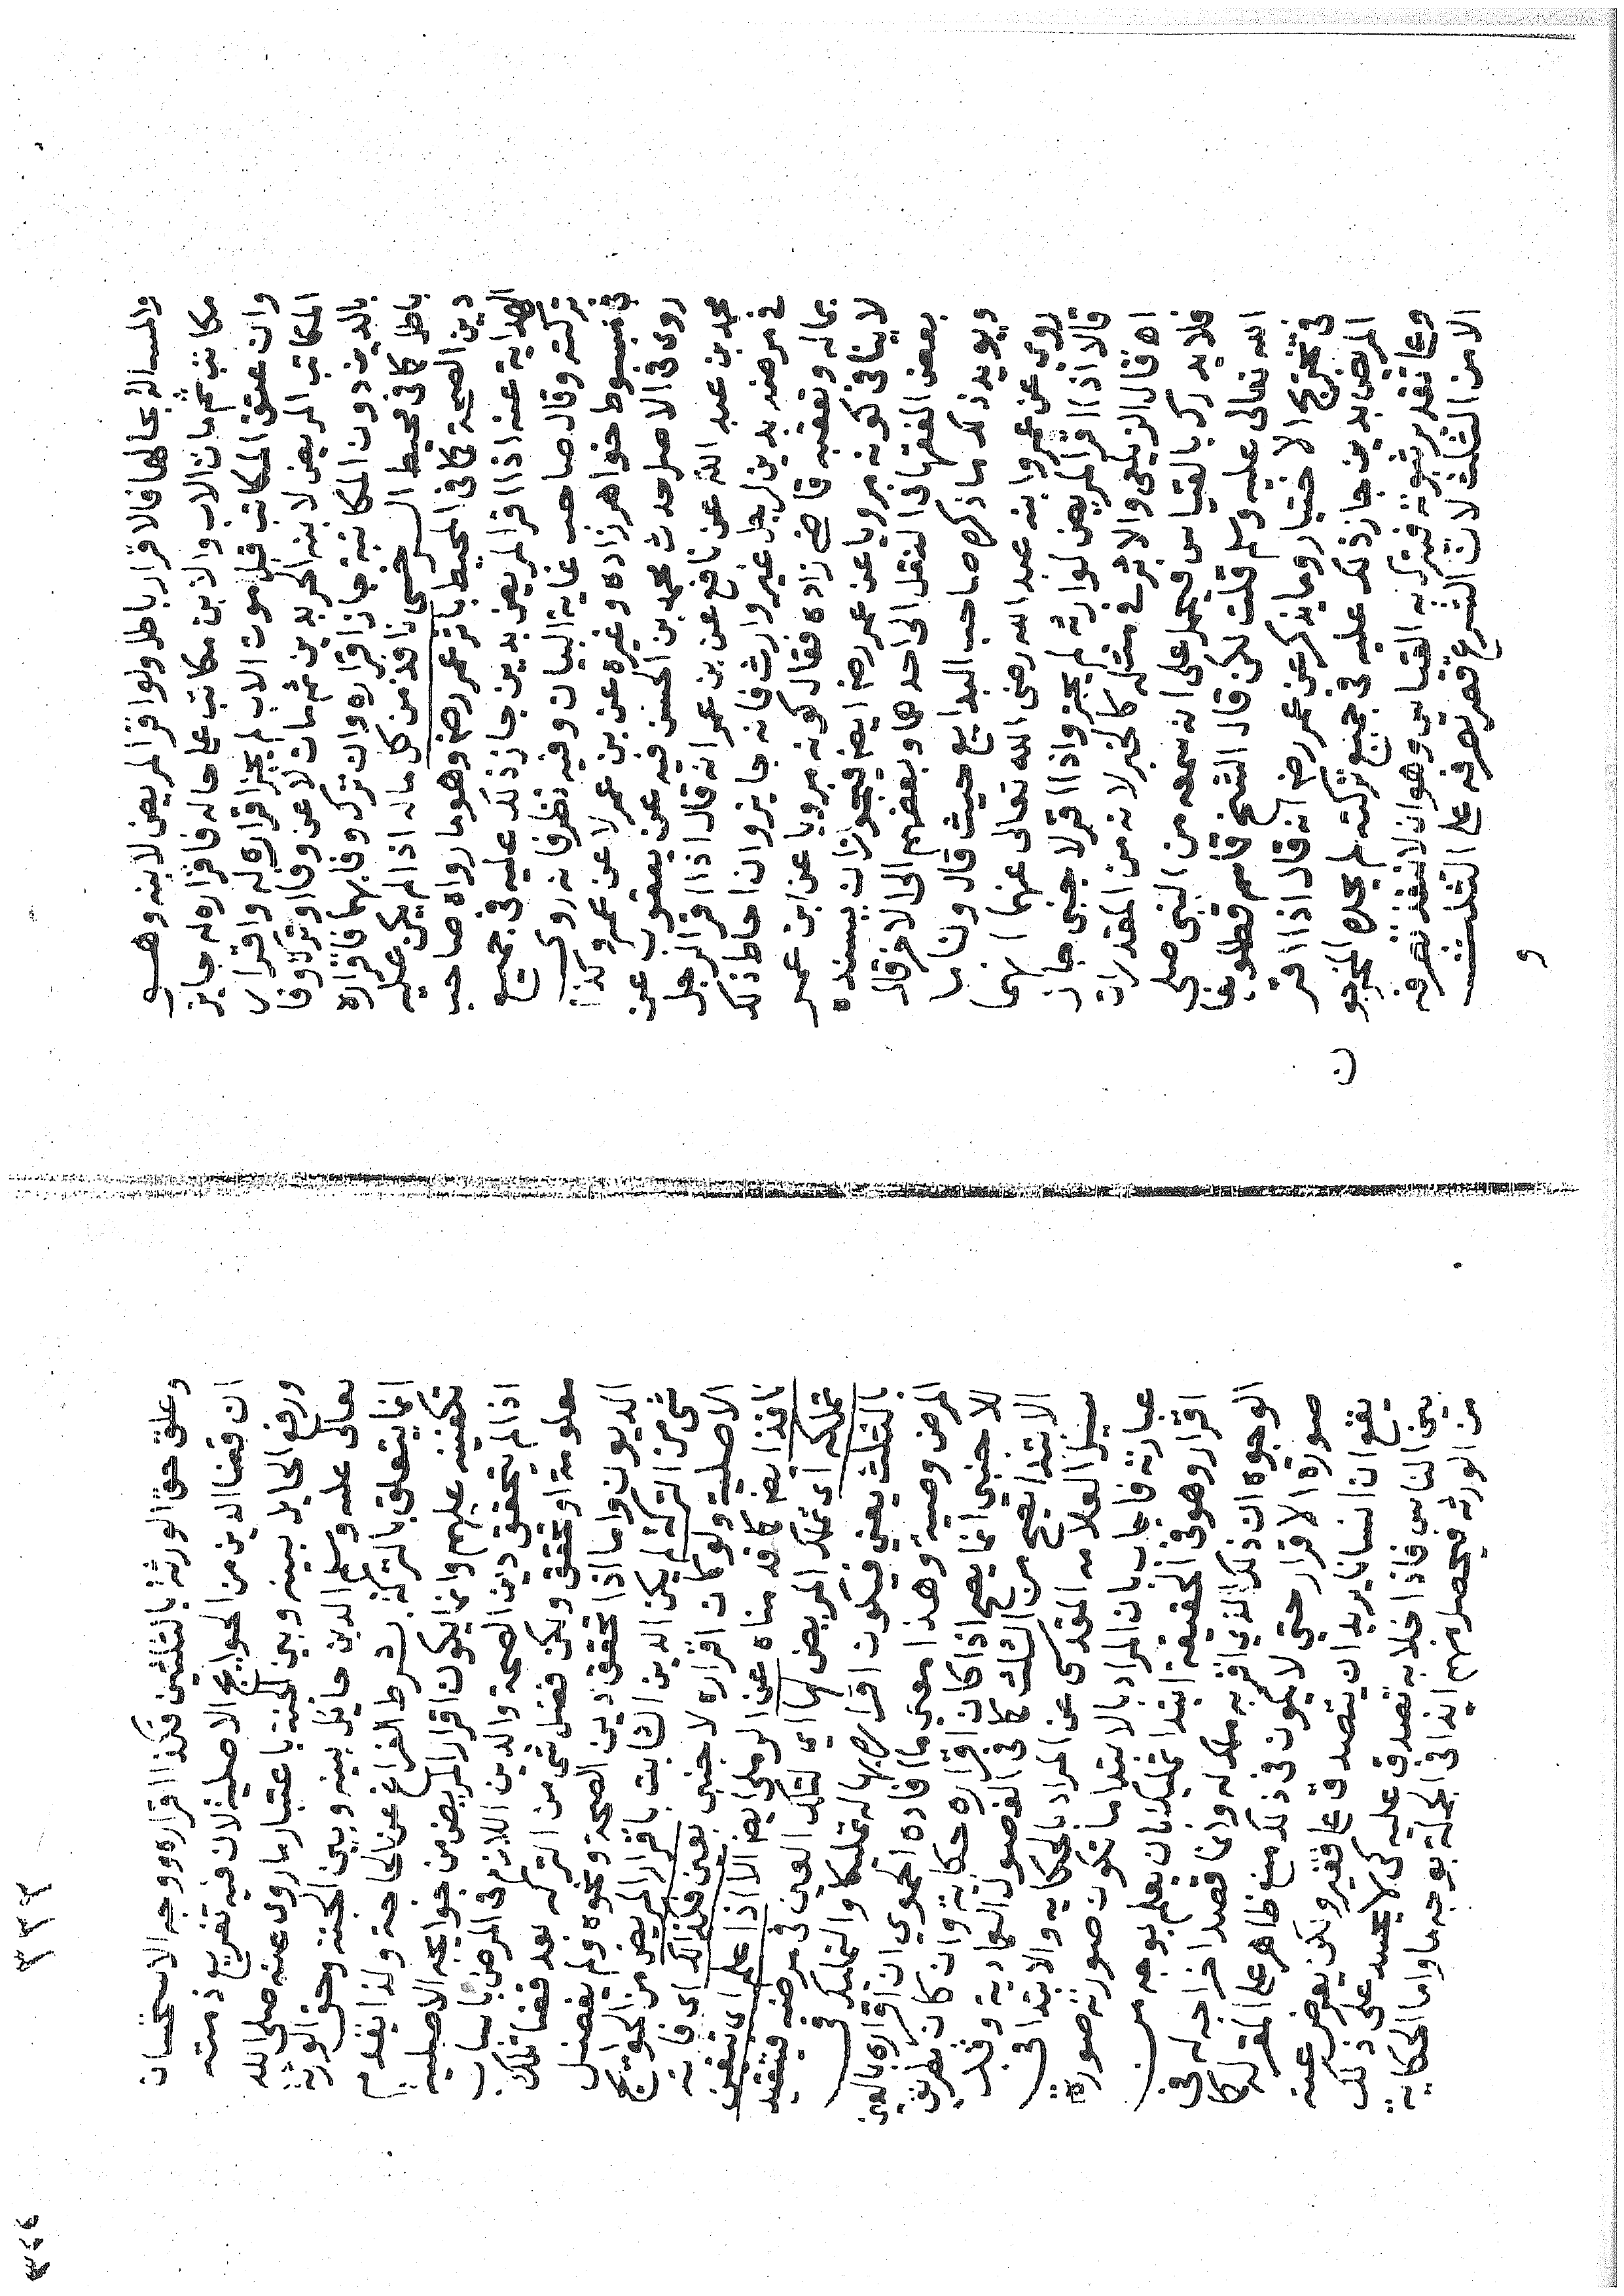 والمسالة بحالها فالاقرار باطل ولو اقر المريض لابنه وهو
مكاتب ثم مات الاب والابن مكاتب على حاله فاقراره له جايز
وان عتق المكاتب قبل موت الاب لم يجز اقراره له واقرار
المكاتب المريض لابنه الحر بدين ثم مات لا عن وفا او ترك وفا
بالدين دون المكاتبة جاز اقراره وان ترك وفا بهما فاقراره
باطل كما في محيط السرخسي نافذ من كل ماله اذا لم يكن عليه
دين الصحة كما في المحيط باثر عمر رضه وهو ما رواه صاحب
الهداية عنه اذا اقر المريض بدين جاز ذلك عليه في جميع
تركته وقال صاحب غاية البيان وفيه نظر فانه روى
في مبسوط خواهر زاده وغيره عن بن عمر لا عن عمر وكذا
روى في الاصل حدث محمد بن الحسن فيه عن يعقوب عن
محمد بن عبد الله عن نافع عن بن عمر انه قال اذا اقر الرجل
في مرضه بدين لرجل غير وارث فانه جايز وان احاط ذلك
بماله وتعقبه قاضي زاده فقال كونه مرويا عن ابن عمر
لا ينافي كونه مرويا عن عمر رضه ايضا فيجوز ان يسنده
بعض الفقها في النقل الى احدهما وبعضهم الى الاخر قال
ويويد ذلك ما ذكره صاحب البدايع حيث قال ولنا ما
روى عن عمر وابنه عبد الله رضى الله تعالى عنهما انهما
قالا اذا اقر المريض لوارثه لم يجز واذا اقر لاجنبى جاز
اه قال الزيلعى والاثر في مثله كالخبر لانه من المقدرات
فلا يدرك بالقياس فيحمل على انه سمعه من النبى صلى
الله تعالى عليه وسلم قلت لكن قال الشيخ قاسم قطلوبغا
في تخريج الاختيار وما يذكر عن عمر رضه انه قال اذا اقر
المريض بدين جاز ذلك عليه في جميع تركته لم يجده المخرجو
ن
وعلى تقدير ثبوته فيترك به القياس وهو ان لا ينفذ تصرفه
الا من الثلث لان الشرع قصر تصرفه على الثلث
و
وعلق حق الورثة بالثلثين فكذا اقراره ووجه الاستحسان
ان قضا الدين من الحوايج الاصلية لان فيه تفريغ ذمته
ورفع الحايل بينه وبين الجنة باعتبار ما روى عنه صلى الله
تعالى عليه وسلم الدين حايل بينه وبين الجنة وحق الورثة
انما يتعلق بالتركة بشرط الفراغ عن الحاجة ولذا يقدم
تكفينه عليهم وانما يكون اقرار المريض من حوايجه الاصلية
اذا لم يتحقق دين الصحة والدين اللازم فى المرض باسباب
معلومة او تحقق ولكن فضل شى من التركه بعد قضا تلك
الديون واما اذا تحقق دين الصحة ونحوه ولم يفضل
شى من التركة لم يكن الدين الثابت باقرار المريض من الحوايج
الاصلية ولو كان اقراره لاجنبى بعين فكذلك اى فانه
نافذ ايضا كما قدمناه عن الرملى ايضا الا اذا علم اى تيقن
تملكه اى تملك المريض لها اى لتلك العين فى مرضه فيتقيد
بالثلث يعنى فيكون اقراره بها له تمليكا والتمليك فى
المرض وصية وهذا معنى ما افاده الحموى ان اقراره بالعين
للاجنبى انما يصح اذا كان اقراره حكاية وان كان بطريق
الابتدا يصح من الثلث كما فى الفصول العمادية وقد
سيل العلامه المقدسى عن المراد بالحكايه والابتدا فى
عبارته فاجاب بان المراد بالابتدا ما تكون صورته صورة
اقرار وهو فى الحقيقه ابتدا تمليك بان يعلم بوجه من
الوجوه ان ذلك الذى اقر به ملك له وانما قصد اخراجه فى
صورة الاقرار حتى لا يكون فى ذلك منع ظاهر على المقر له كما
يقع ان انسانا يريد ان يتصدق على فقير ولكن يعرض عنه
بين الناس فاذا خلا به تصدق عليه كى لا يحسد على ذلك
من الورثه فيحصل منهم ايذا فى الجملة بوجه ما واما الحكاية